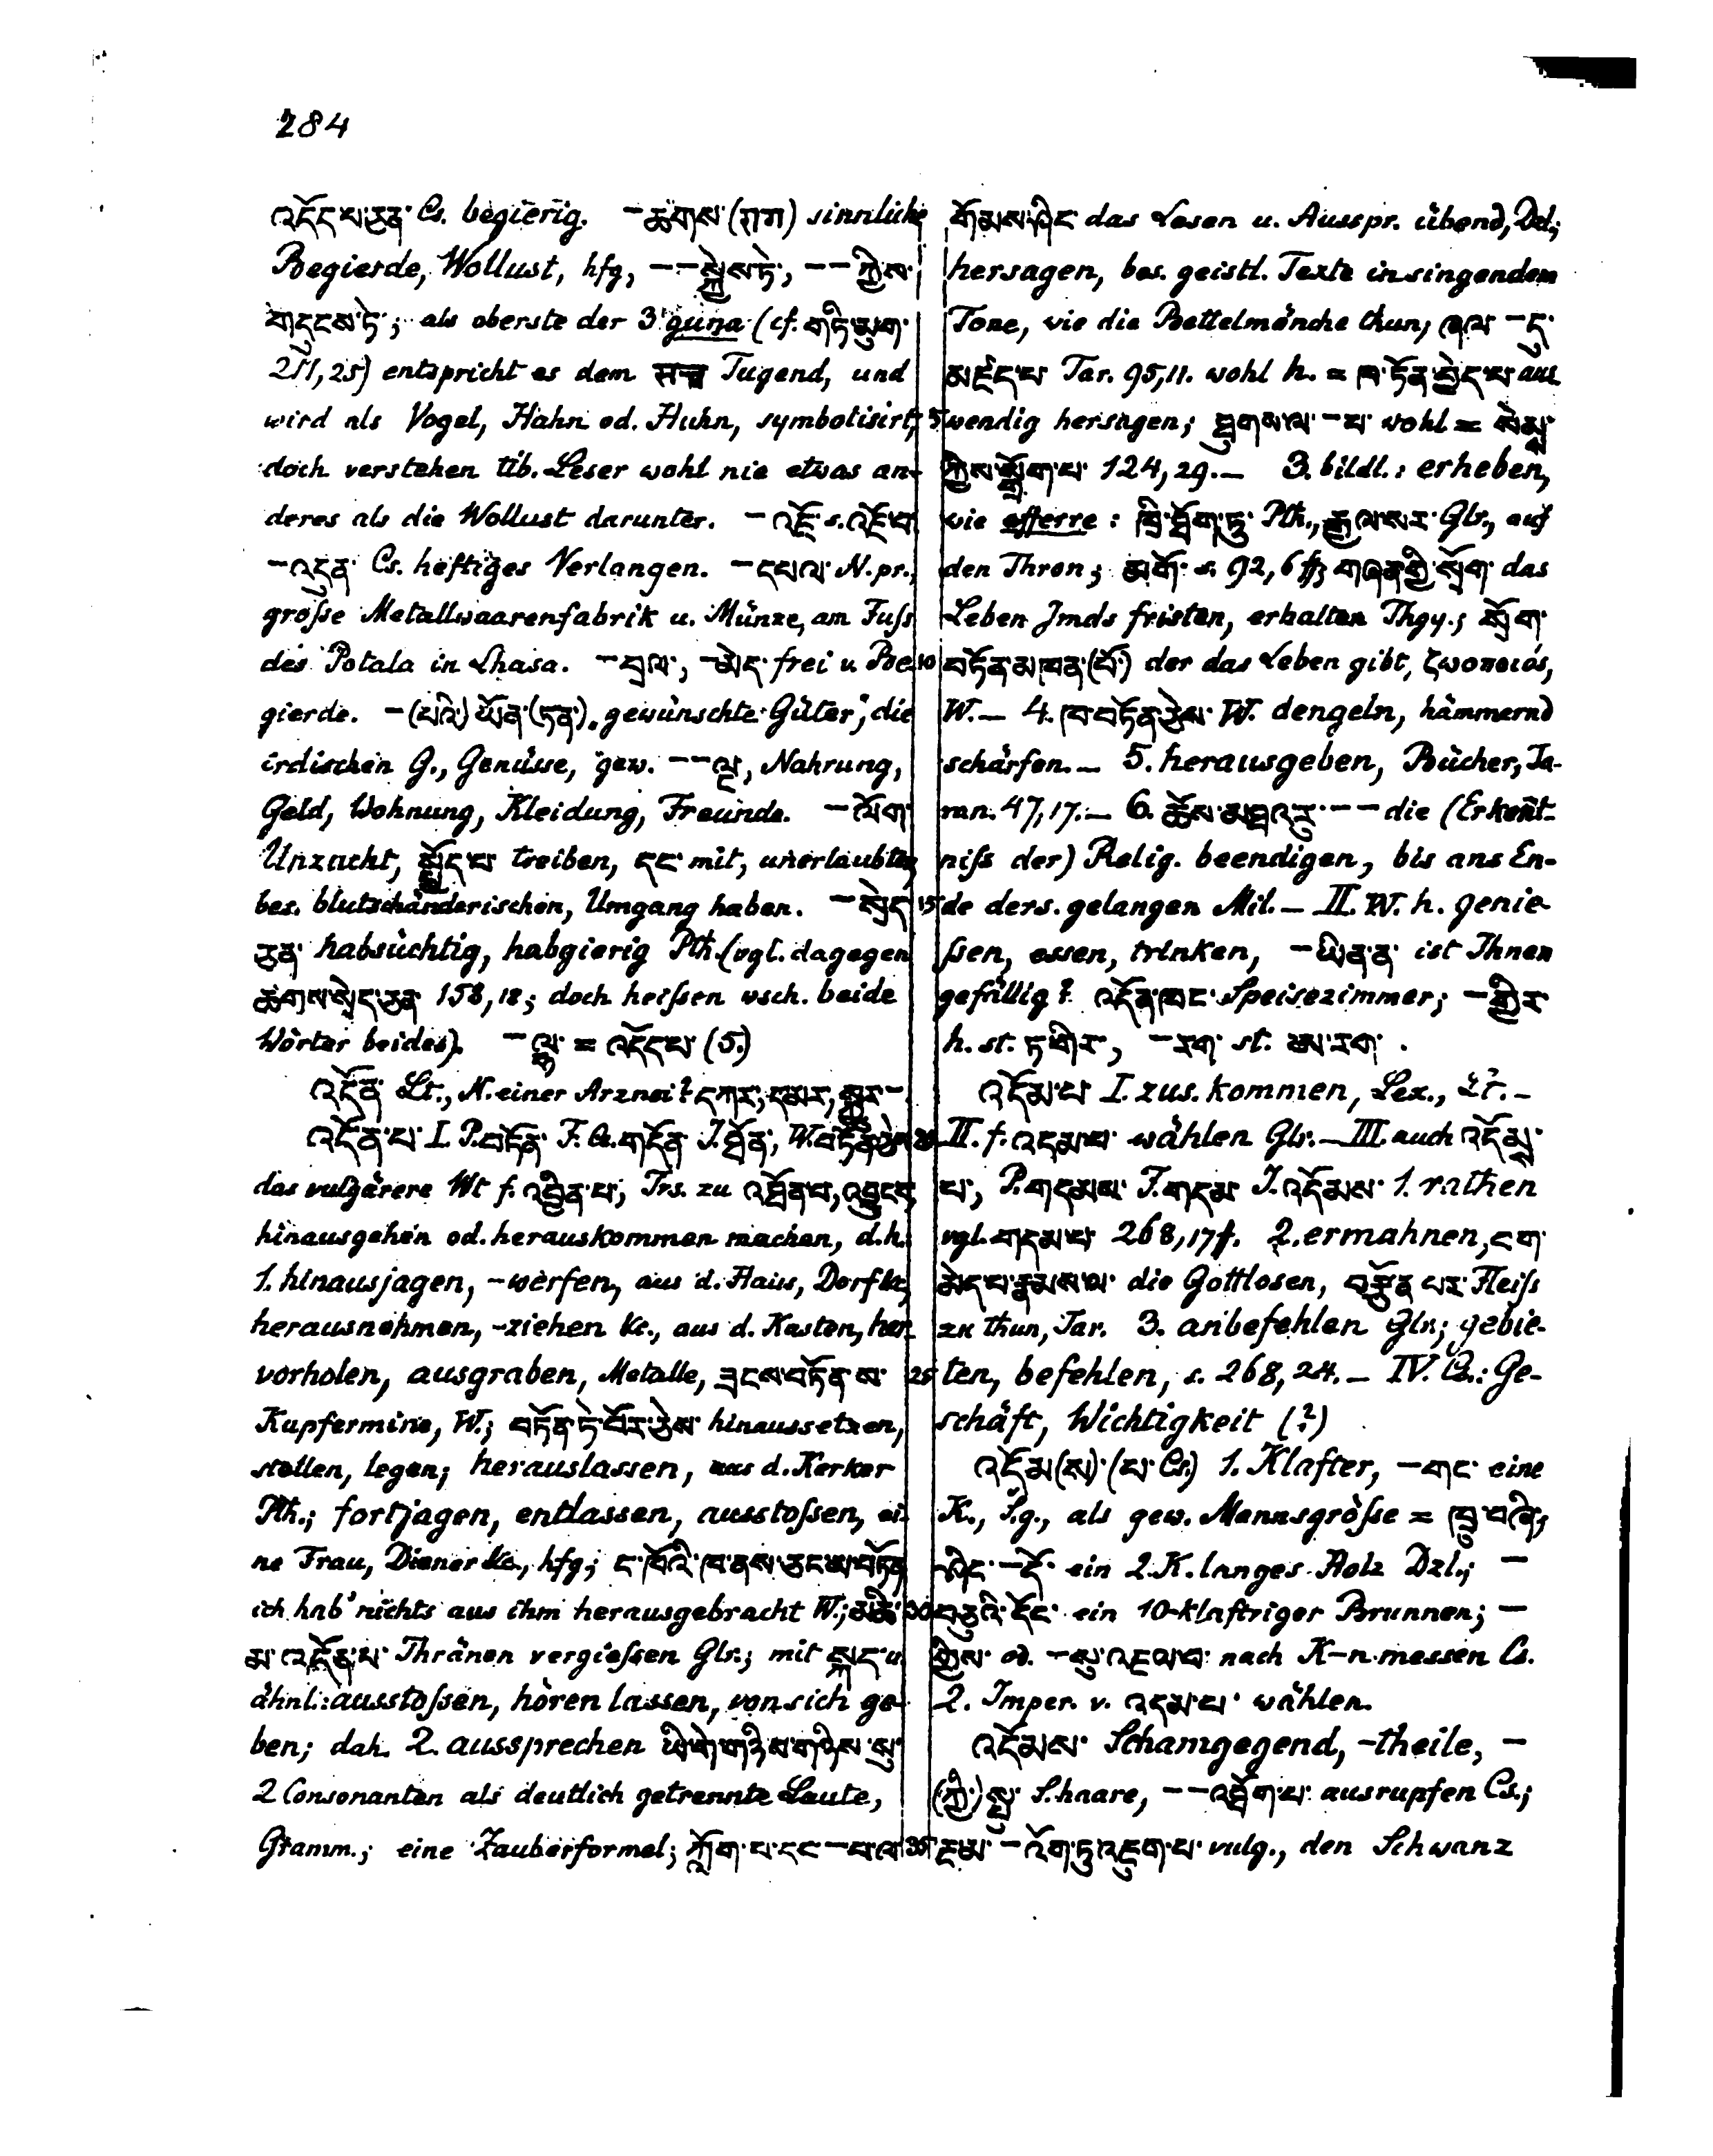 284
འདོད་པ་ཅན་ Cs. begierig. –ཆགས་ (राग) sinnliche
Begierde, Wollust, hfg, ––སྐྱེས་ཏེ་, ––ཀྱིས་
གདུངས་ཏེ་; als oberste der 3 guṇa (cf. གཏི་མུག་
211,25) entspricht es dem सत्त्व Tugend, und
wird als Vogel, Hahn od. Huhn, symbolisirt,
doch verstehen tib. Leser wohl nie etwas an-
deres als die Wollust darunter. –འཇོ་ s. འཇོ་བ
–འདུན་ Cs. heftiges Verlangen. –དཔལ་ N. pr.,
große Metallwaarenfabrik u. Münze, am Fuß
des Potala in Lhasa. –བྲལ་, –མེད་ frei v. Be-
gierde. –(པའི་) ཡོན་(ཏན་) „gewünschte Güter“, die
irdischen G., Genüsse, gew. ––ལྔ་, Nahrung,
Geld, Wohnung, Kleidung, Freunde. –ལོག་
Unzucht, སྤྱོད་པ་ treiben, དང་ mit, unerlaubten,
bes. blutschänderischen, Umgang haben. –སྲེད་
ཅན་ habsüchtig, habgierig Pth. (vgl. dagegen
ཆགས་སྲེད་ཅན་ 158,18; doch heißen wsch. beide
Wörter beides). –ལྷ་ = འདོད་པ་ (5.)
འདོན་ Lt., N. einer Arznei? དཀར་, དམར་, སྨུར་–
འདོན་པ་ I. P. བཏོན་ F. A. གདོན་ J. ཐོན་, W. བཏོན་ཅེས་
das vulgärere Wt f. འབྱིན་པ་, Trs. zu འཐོན་པ་, འབྱུང་བ་,
hinausgehen od. herauskommen machen, d.h.
1. hinausjagen, -werfen, aus d. Haus, Dorf &c,
herausnehmen, -ziehen &c., aus d. Kasten, her-
vorholen, ausgraben, Metalle, ཟངས་བཏོན་ས་
Kupfermine, W.; བཏོན་ཏེ་བོར་ཅེས་ hinaussetzen,
stellen, legen; herauslassen, aus d. Kerker
Pth.; fortjagen, entlassen, ausstoßen, ei-
ne Frau, Diener &c., hfg; ང་ཁོའི་ཁ་ནས་ཅང་མ་བཏོན་
ich hab' nichts aus ihm herausgebracht W.; མཆི་
མ་འདོན་པ་ Thränen vergießen Glr.; mit སྐད་ u.
ähnl.: ausstoßen, hören lassen, von sich ge-
ben; dah. 2. aussprechen ཡི་གེ་གཉིས་གཉིས་སུ་
2 Consonanten als deutlich getrennte Laute,
Gramm.; eine Zauberformel; ཀློག་པ་དང་–པ་ལ་
གོམས་ཤིང་ das Lesen u. Ausspr. übend, Dzl.;
hersagen, bes. geistl. Texte in singendem
Tone, wie die Bettelmönche thun; ཞལ་–དུ་
མཛད་པ་ Tar. 95,11. wohl h. = ཁ་ཏོན་བྱེད་པ་ aus
5 wendig hersagen; ཐུགས་ལ་–པ་ wohl = སེམས་
ཀྱིས་སྒྲོག་པ་ 124,29.– 3. bildl.: erheben,
wie efferre: ཁྲི་ཐོག་ཏུ་ Pth., རྒྱལ་སར་ Glr., auf
den Thron; མགོ་ s. 92,6 ff; གཞན་གྱི་སྲོག་ das
Leben Jmds fristen, erhalten Thgy.; སྲོག་
10 བཏོན་མཁན་(པོ་) der das Leben gibt, ζωοποιός,
W.– 4. ཁ་བཏོན་ཅེས་ W. dengeln, hämmernd
schärfen.– 5. herausgeben, Bücher, Ta-
ran. 47,17.– 6. ཆོས་མཐའ་རུ་–– die (Erkent-
niß der) Relig. beendigen, bis ans En-
15 de ders. gelangen Mil.– II. W. h. genie-
ßen, essen, trinken, –ཡིན་ན་ ist Ihnen
gefällig? འདོན་ཁང་ Speisezimmer; –གྱིར་
h. st. ཏ་གིར་, –རག་ st. ཨ་རག་.
འདོམ་པ་ I. zus. kommen, Lex., Lt.–
20 II. f. འདམ་པ་ wählen Glr.– III. auch འདོམས་
པ་, P. གདམས་ F. གདམ་ J. འདོམས་ 1. rathen
vgl. གདམ་པ་ 268,17 f. 2. ermahnen, ངག་
མེད་པ་རྣམས་ལ་ die Gottlosen, བརྩོན་པར་ Fleiß
zu thun, Tar. 3. anbefehlen Glr.; gebie-
25 ten, befehlen, s. 268,24.– IV. Cs.: Ge-
schäft, Wichtigkeit (?)
འདོམ་(ས)་ (པ་ Cs.) 1. Klafter, –གང་ eine
K., S.g., als gew. Mannsgröße = ཁྲུ་བཞི་;
ཤིང་–དོ་ ein 2.K. langes Holz Dzl.; –
30 བཅུའི་དོང་ ein 10-klaftriger Brunnen; –
གྱིས་ od. –སུ་འཇལ་བ་ nach K-n. messen Cs.
2. Imper. v. འདམ་པ་ wählen.
འདོམས་ Schamgegend, -theile, –
(ཀྱི་) སྤུ་ S.haare, ––འཐོག་པ་ ausrupfen Cs.;
35 རྔ་མ་–འོག་ཏུ་འཇུག་པ་ vulg., den Schwanz